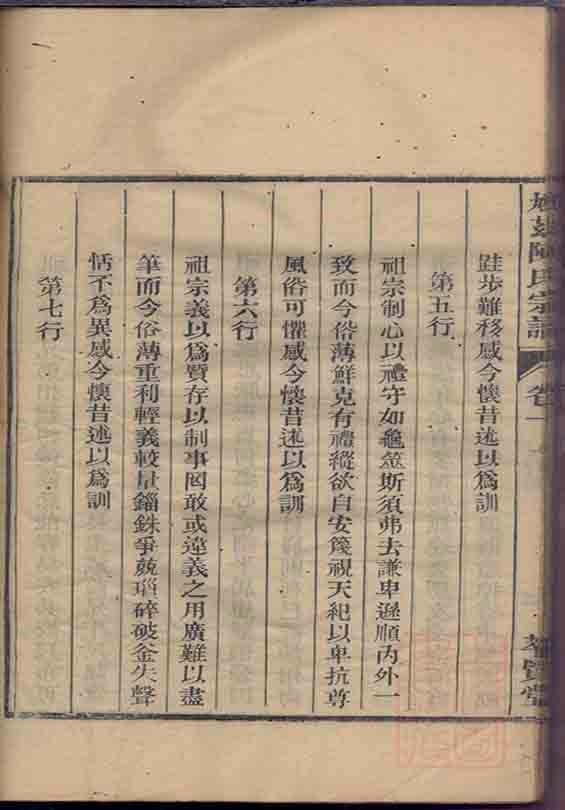 陳氏宗譜
卷一
跬步難移感今懷昔述以爲訓
第五行
祖宗制心以禮守如龜筮斯須弗去謙卑遜順內外一
致而今俗薄鮮克有禮縱欲自安篾視天紀以卑抗尊
風俗可懼感今懷昔述以爲訓
第六行
祖宗義以爲質存以制事罔敢或違義之用廣難以盡
筆而今俗薄重利輕義較量錙銖爭兢瑣碎破釜失聲
恬不爲異感今懷昔述以爲訓
第七行